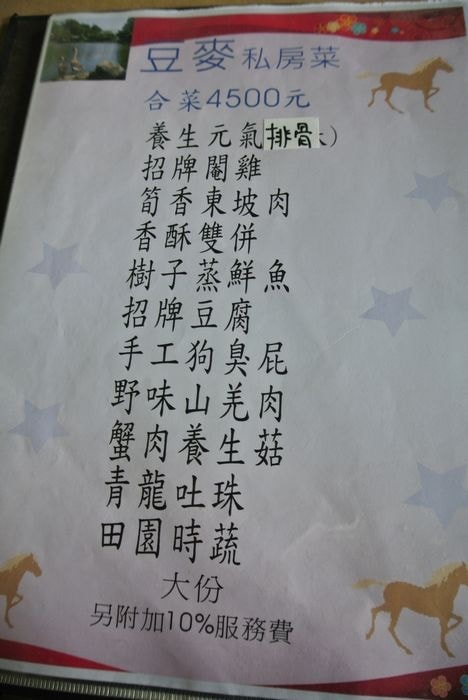 豆麥私房菜
合菜4500元
養生元氣排骨)
招牌閹雞
筍香東坡肉
香酥雙併
樹子蒸鮮魚
招牌豆腐
手工狗臭屁
野味山羌肉
蟹肉養生菇
青龍吐珠
田園時蔬
大份
另附加10%服務費